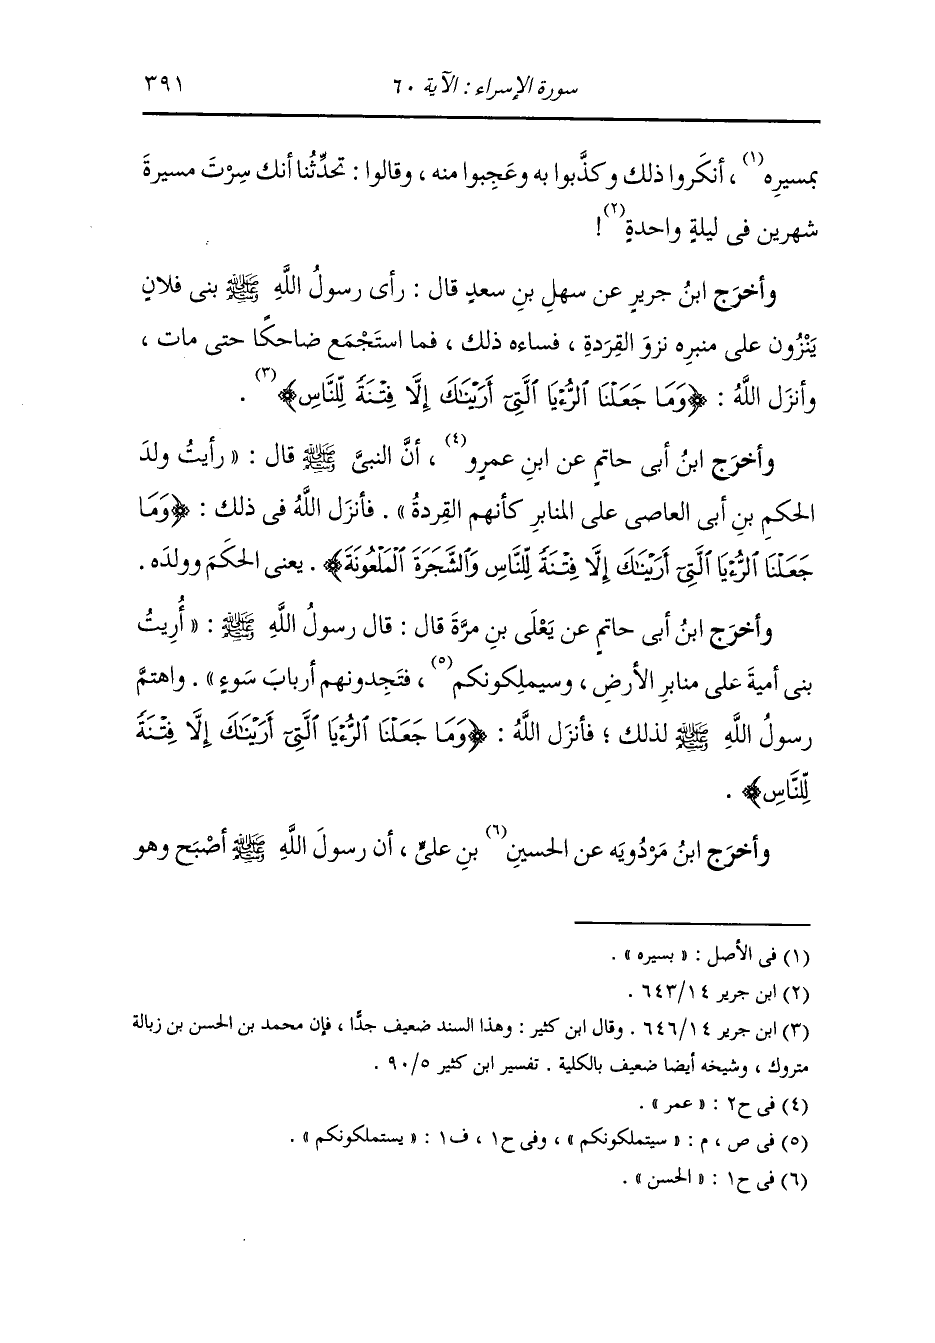 سورة الإسراء : الآية ٦٠ ٣٩١
بمسيرِه(١) ، أنكَروا ذلك وكذَّبوا به وعَجِبوا منه ، وقالوا : تحدِّثُنا أنك سِرْتَ مسيرةَ
شهرين فى ليلةٍ واحدةٍ(٢) !
وأخرَج ابنُ جريرٍ عن سهلِ بنِ سعدٍ قال : رأى رسولُ اللَّهِ ﷺ بنى فلانٍ
يَنْزُون على منبرِه نزوَ القِرَدةِ ، فساءه ذلك ، فما استَجْمَع ضاحكًا حتى مات ،
وأنزَل اللَّهُ : ﴿وَمَا جَعَلْنَا ٱلرُّءْيَا ٱلَّتِىٓ أَرَيْنَٰكَ إِلَّا فِتْنَةً لِّلنَّاسِ﴾(٣) .
وأخرَج ابنُ أبى حاتمٍ عن ابنِ عمرٍو(٤) ، أنَّ النبىَّ ﷺ قال : « رأيتُ ولدَ
الحكمِ بنِ أبى العاصى على المنابرِ كأنهم القِردةُ » . فأنزَل اللَّهُ فى ذلك : ﴿وَمَا
جَعَلْنَا ٱلرُّءْيَا ٱلَّتِىٓ أَرَيْنَٰكَ إِلَّا فِتْنَةً لِّلنَّاسِ وَٱلشَّجَرَةَ ٱلْمَلْعُونَةَ﴾ . يعنى الحكَمَ وولدَه .
وأخرَج ابنُ أبى حاتمٍ عن يَعْلَى بنِ مرَّةَ قال : قال رسولُ اللَّهِ ﷺ : « أُرِيتُ
بنى أميةَ على منابرِ الأرضِ ، وسيملِكونكم(٥) ، فتَجِدونهم أربابَ سَوءٍ » . واهتمَّ
رسولُ اللَّهِ ﷺ لذلك ؛ فأنزَل اللَّهُ : ﴿وَمَا جَعَلْنَا ٱلرُّءْيَا ٱلَّتِىٓ أَرَيْنَٰكَ إِلَّا فِتْنَةً
لِّلنَّاسِ﴾ .
وأخرَج ابنُ مَرْدُويَه عن الحسينِ(٦) بنِ علىٍّ ، أن رسولَ اللَّهِ ﷺ أصْبَح وهو
(١) فى الأصل : « بسيره » .
(٢) ابن جرير ٦٤٣/١٤ .
(٣) ابن جرير ٦٤٦/١٤ . وقال ابن كثير : وهذا السند ضعيف جدًّا ، فإن محمد بن الحسن بن زبالة
متروك ، وشيخه أيضا ضعيف بالكلية . تفسير ابن كثير ٩٠/٥ .
(٤) فى ح٢ : « عمر » .
(٥) فى ص ، م : « سيتملكونكم » ، وفى ح١ ، ف١ : « يستملكونكم » .
(٦) فى ح١ : « الحسن » .